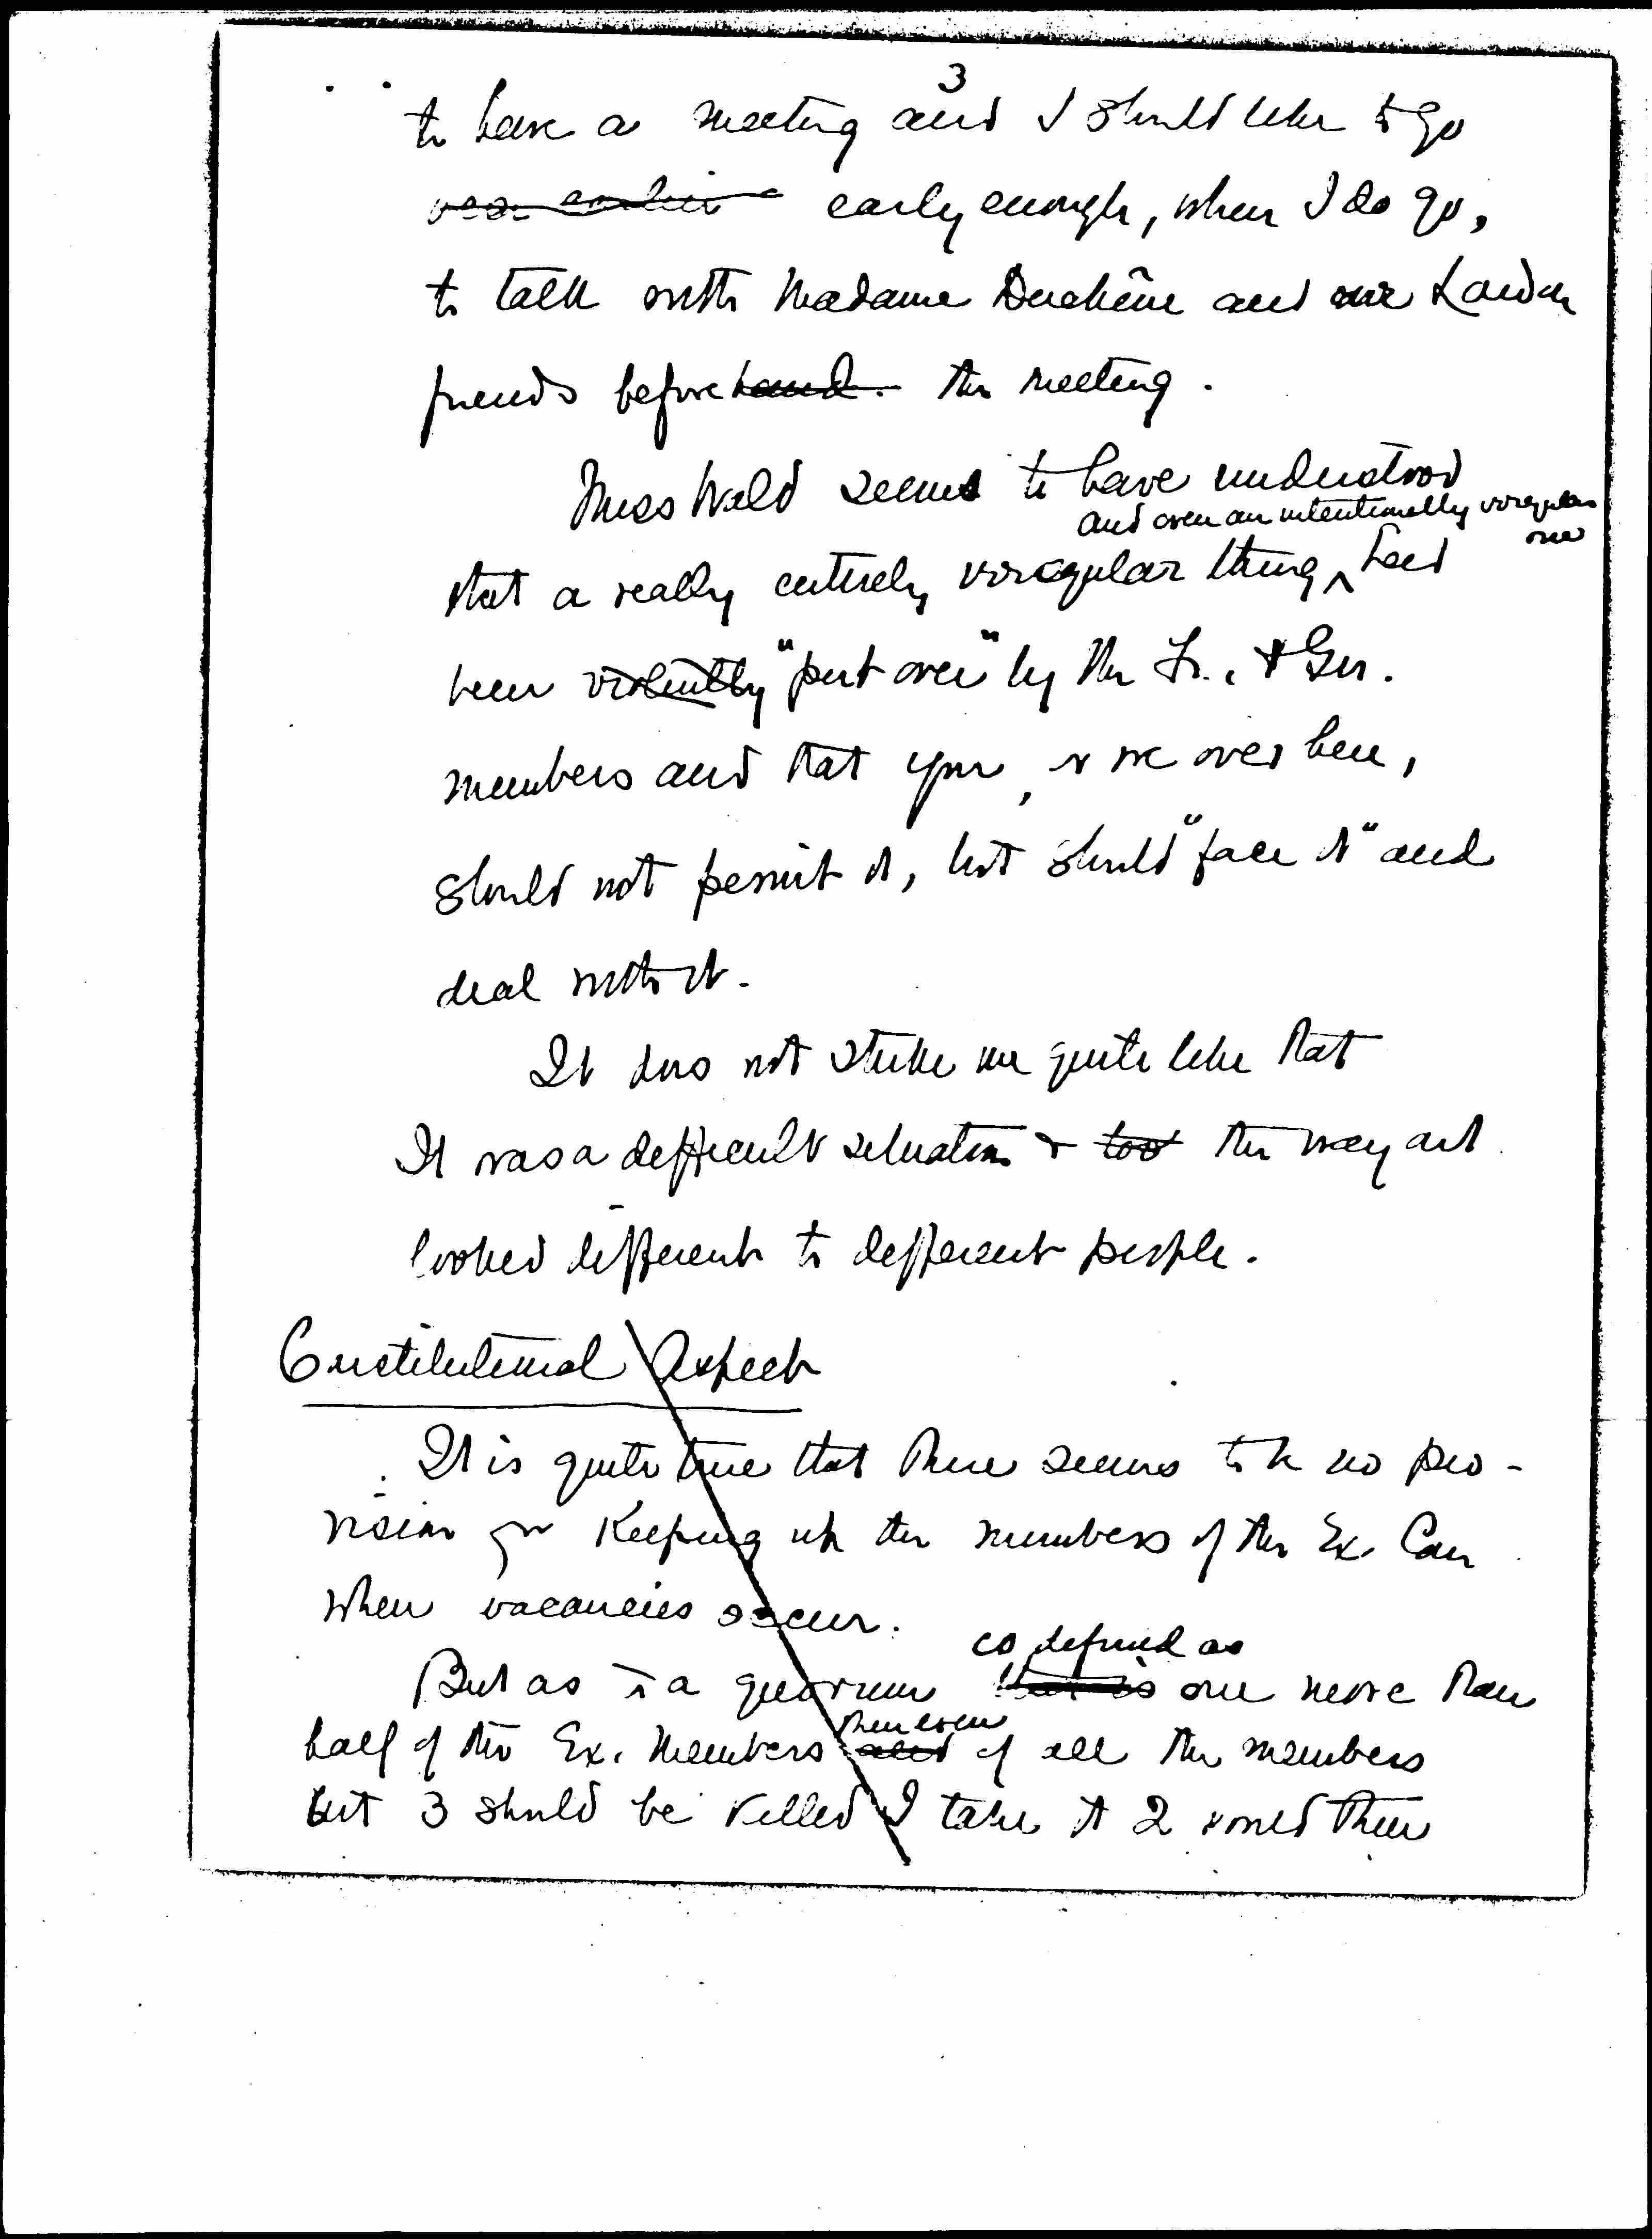 3
to have a meeting and I should like to go
early enough, when I do go,
to talk with Madame Duchêne and our London
friends before<s>hand.</s> the meeting.
Miss Wald seems to have understood
and even an intentionally irregular
one
that a really entirely irregular thing ^ had
been <s>violently</s> "put over" by the Fr. & Ger.
members and that you, & we over here,
should not permit it, but should "face it" and
deal with it.
It does not strike me quite like that
It was a difficult situation & <s>too</s> the way out
looked different to different people.
Constitutional Aspect
It is quite true that there seems to be no pro-
vision for keeping up the numbers of the Ex. Com
when vacancies occur.
is defined as
But as a quorum <s>that is</s> one more than
then even
half of the Ex. Members <s>and</s> if all the members
but 3 should be killed I take it 2 would then